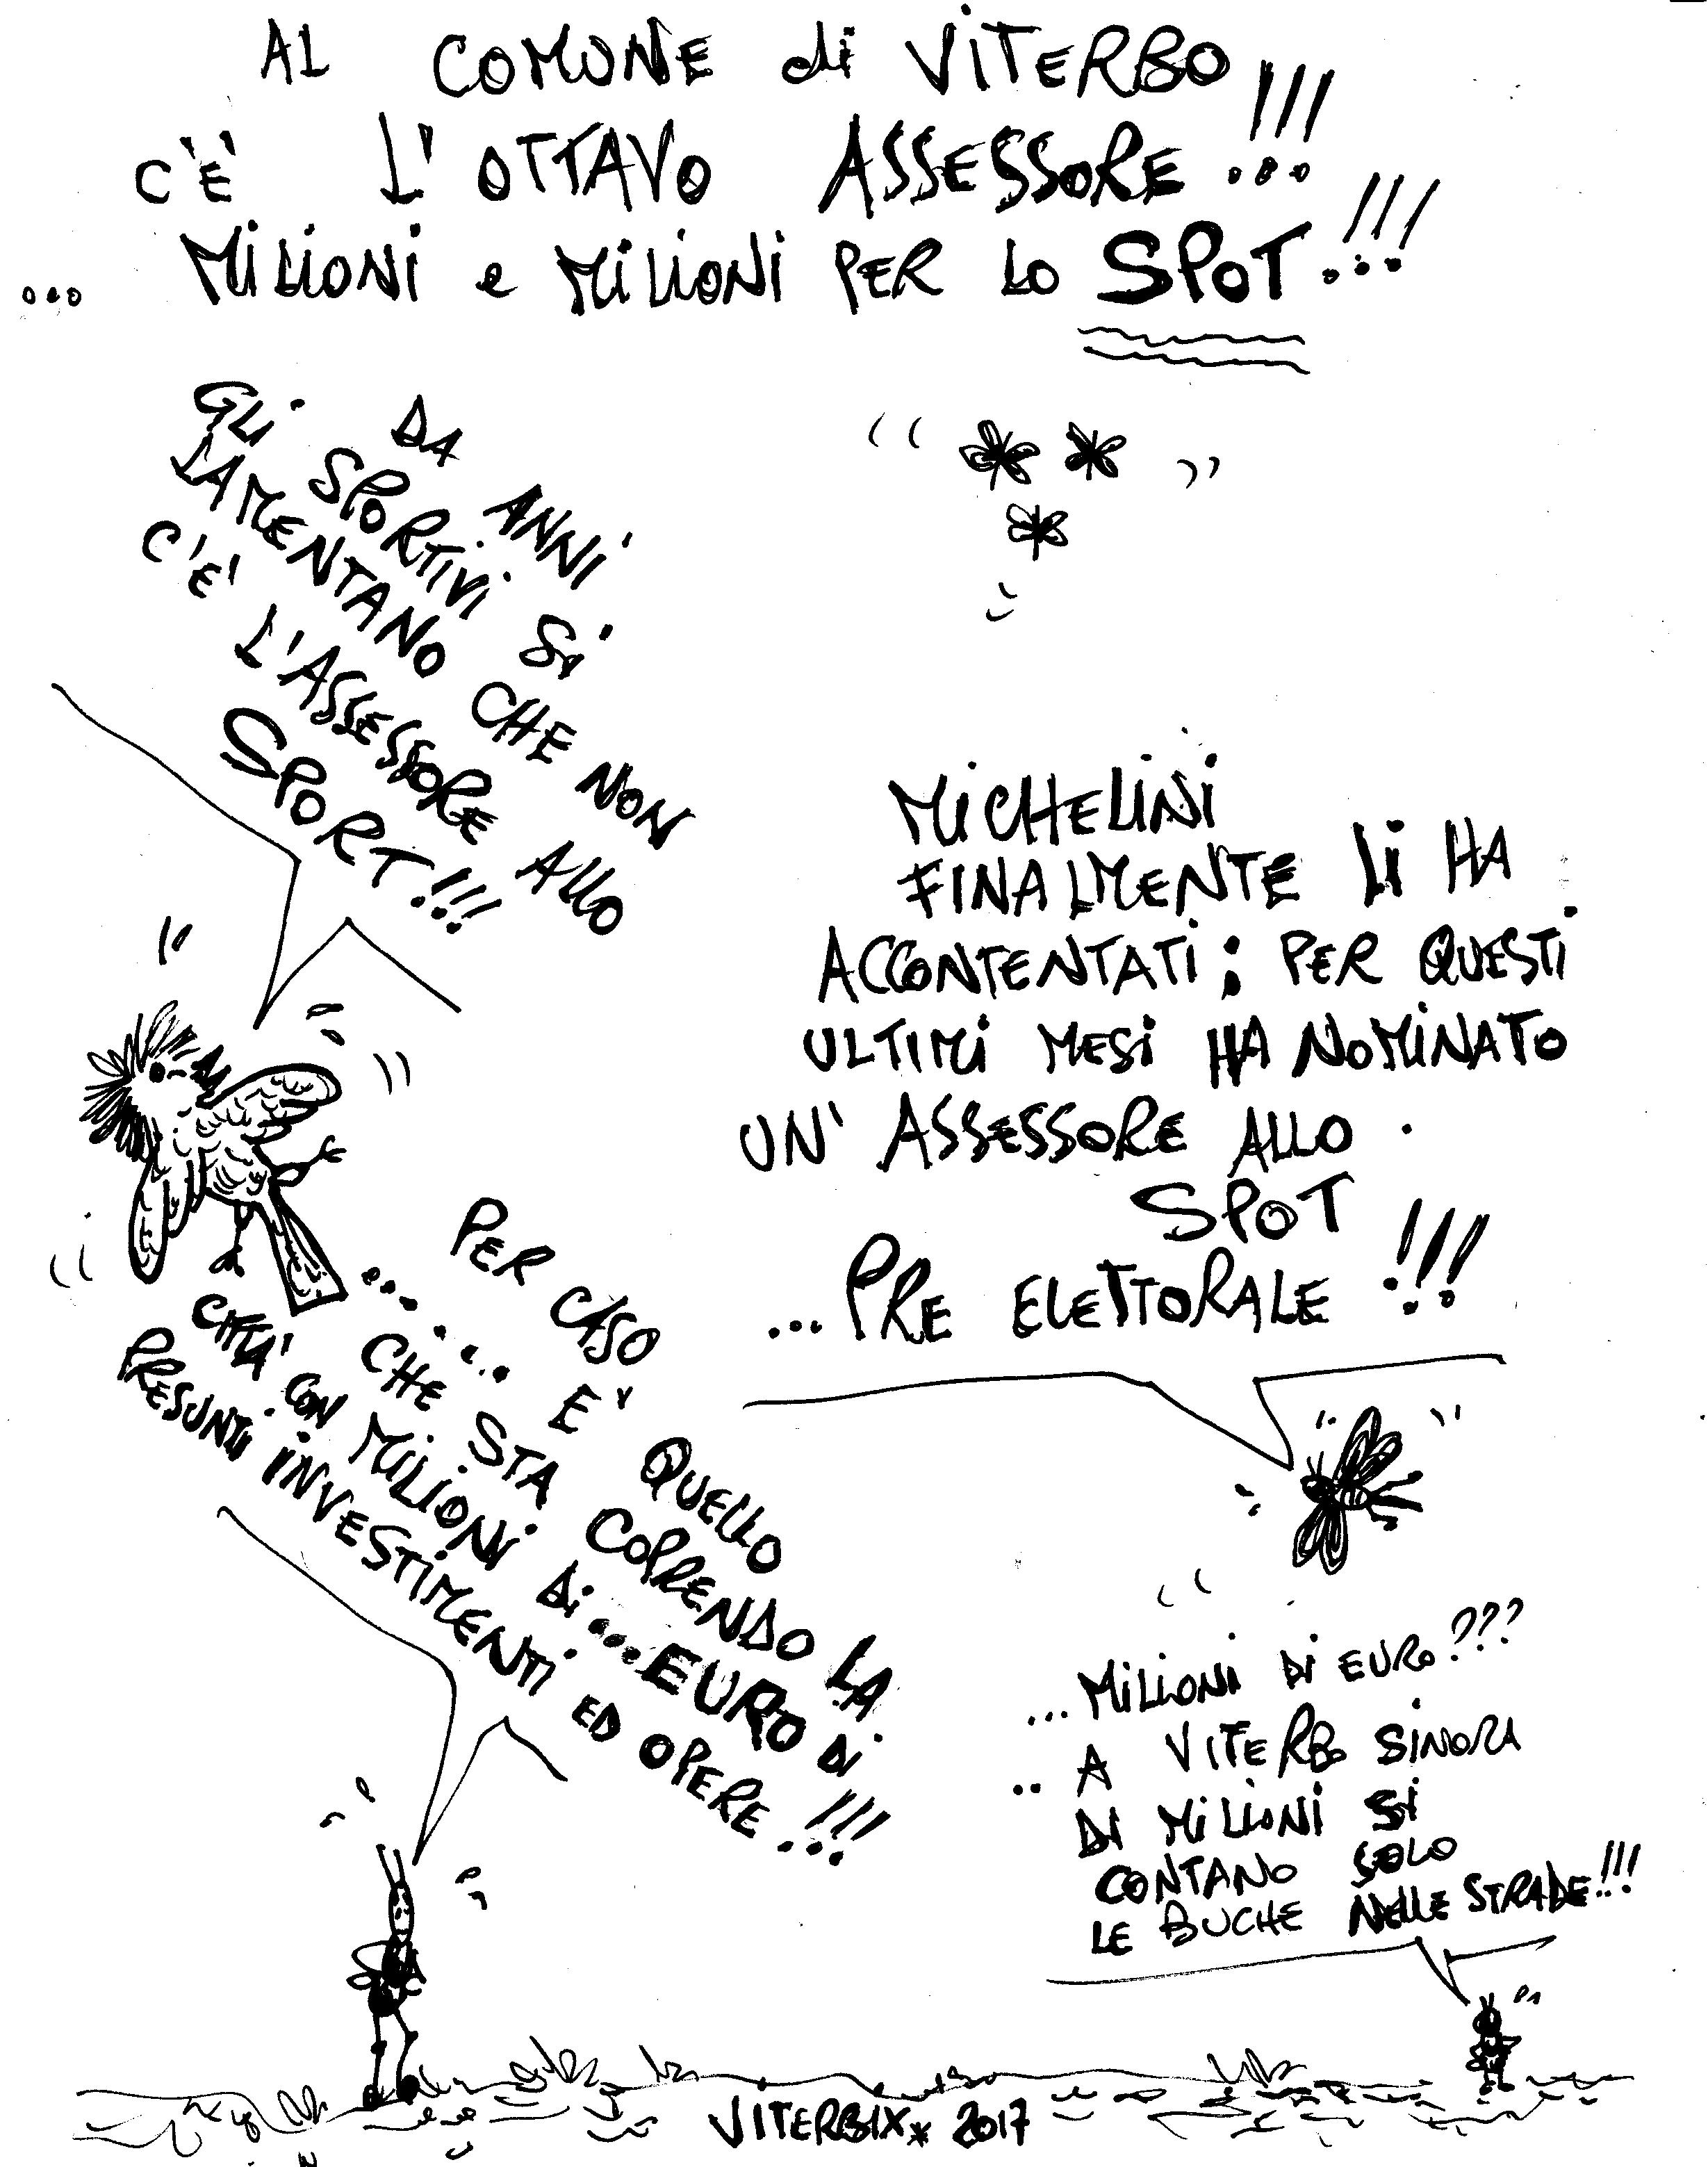 AL COMUNE di VITERBO
C'E' L'OTTAVO ASSESSORE...!!!
... MILIONI e MILIONI PER LO SPOT...!!!
DA ANNI
GLI SPORTIVI SI
LAMENTANO CHE NON
C'E' L'ASSESSORE ALLO
SPORT!!!
MICHELINI
FINALMENTE LI HA
ACCONTENTATI: PER QUESTI
ULTIMI MESI HA NOMINATO
UN'ASSESSORE ALLO
SPOT
...PRE ELETTORALE !!!
PER CASO
...... E' QUELLO
CHE STA COPRENDO LA
CITTA' CON MILIONI DI...EURO DI
PRESUNTI INVESTIMENTI ED OPERE!!!
...MILIONI DI EURO???
.. A VITERBO SINORA
DI MILIONI SI
CONTANO SOLO
LE BUCHE NELLE STRADE!!!
VITERBIX* 2017